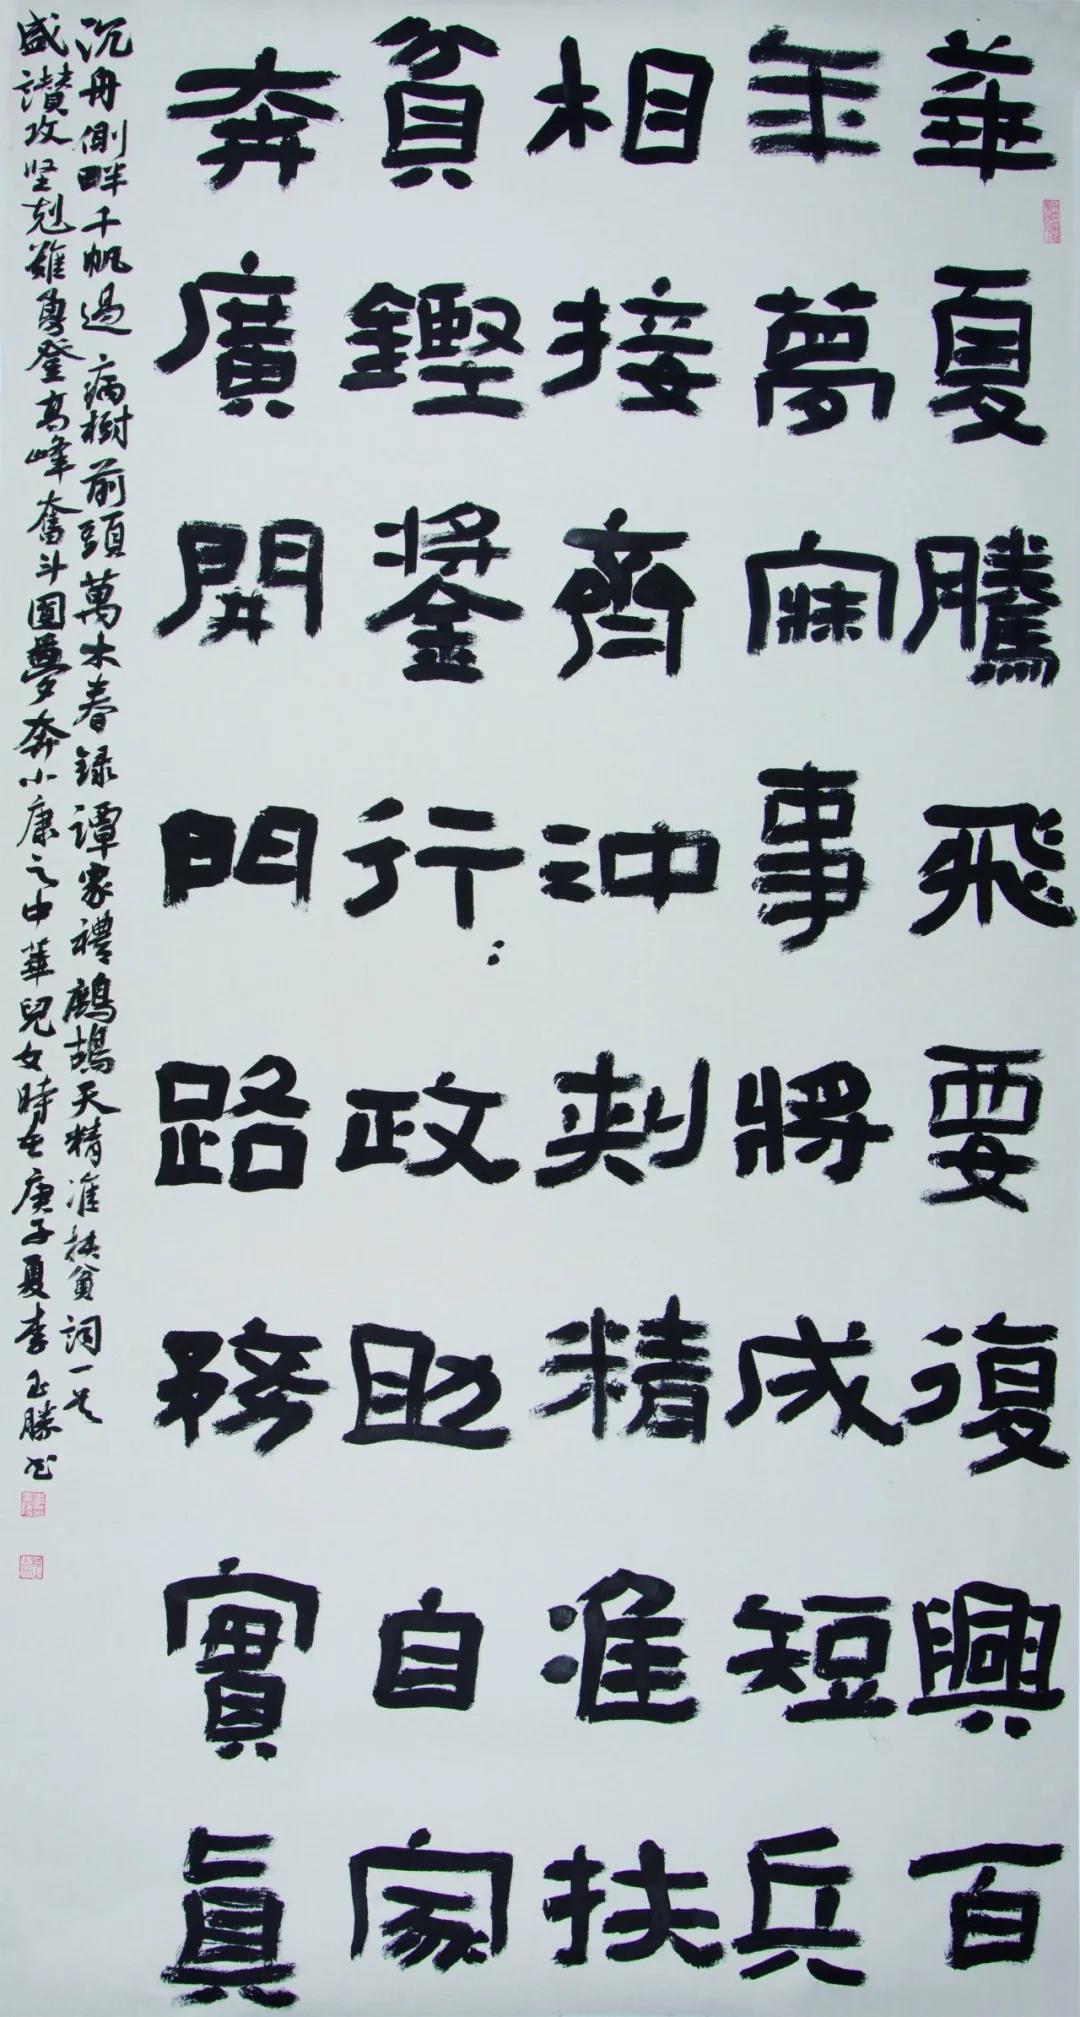 華夏騰飛要復興百
年夢寐事將成短兵
相接齊沖刺精准扶
貧鏗鏘行〻政助自家
奔廣開門路務實眞
沉舟側畔千帆過病樹前頭萬木春録譚家禮鷓鴣天精准扶貧詞一首
盛讃攻坚剋難勇登高峰奮斗圓夢奔小康之中華兒女時在庚子夏李玉勝书